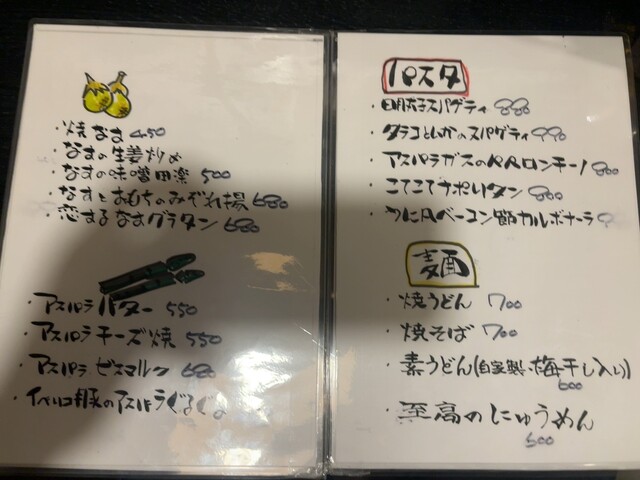 ・焼なす 450
・なすの生姜炒め
・なすの味噌田楽 500
・なすとおもちのみぞれ揚 680
・恋するなすグラタン 680
・アスパラバター 550
・アスパラチーズ焼 550
・アスパラビスマルク 680
・イベリコ豚のアスパラぐるぐる
パスタ
・明太子スパゲティ 880
・タラコといかのスパゲティ 990
・アスパラガスのペペロンチーノ 800
・こてこてナポリタン 800
・うに風ベーコン節カルボナーラ
麺
・焼うどん 700
・焼そば 700
・素うどん(自家製梅干し入り)
600
・至高のにゅうめん
500